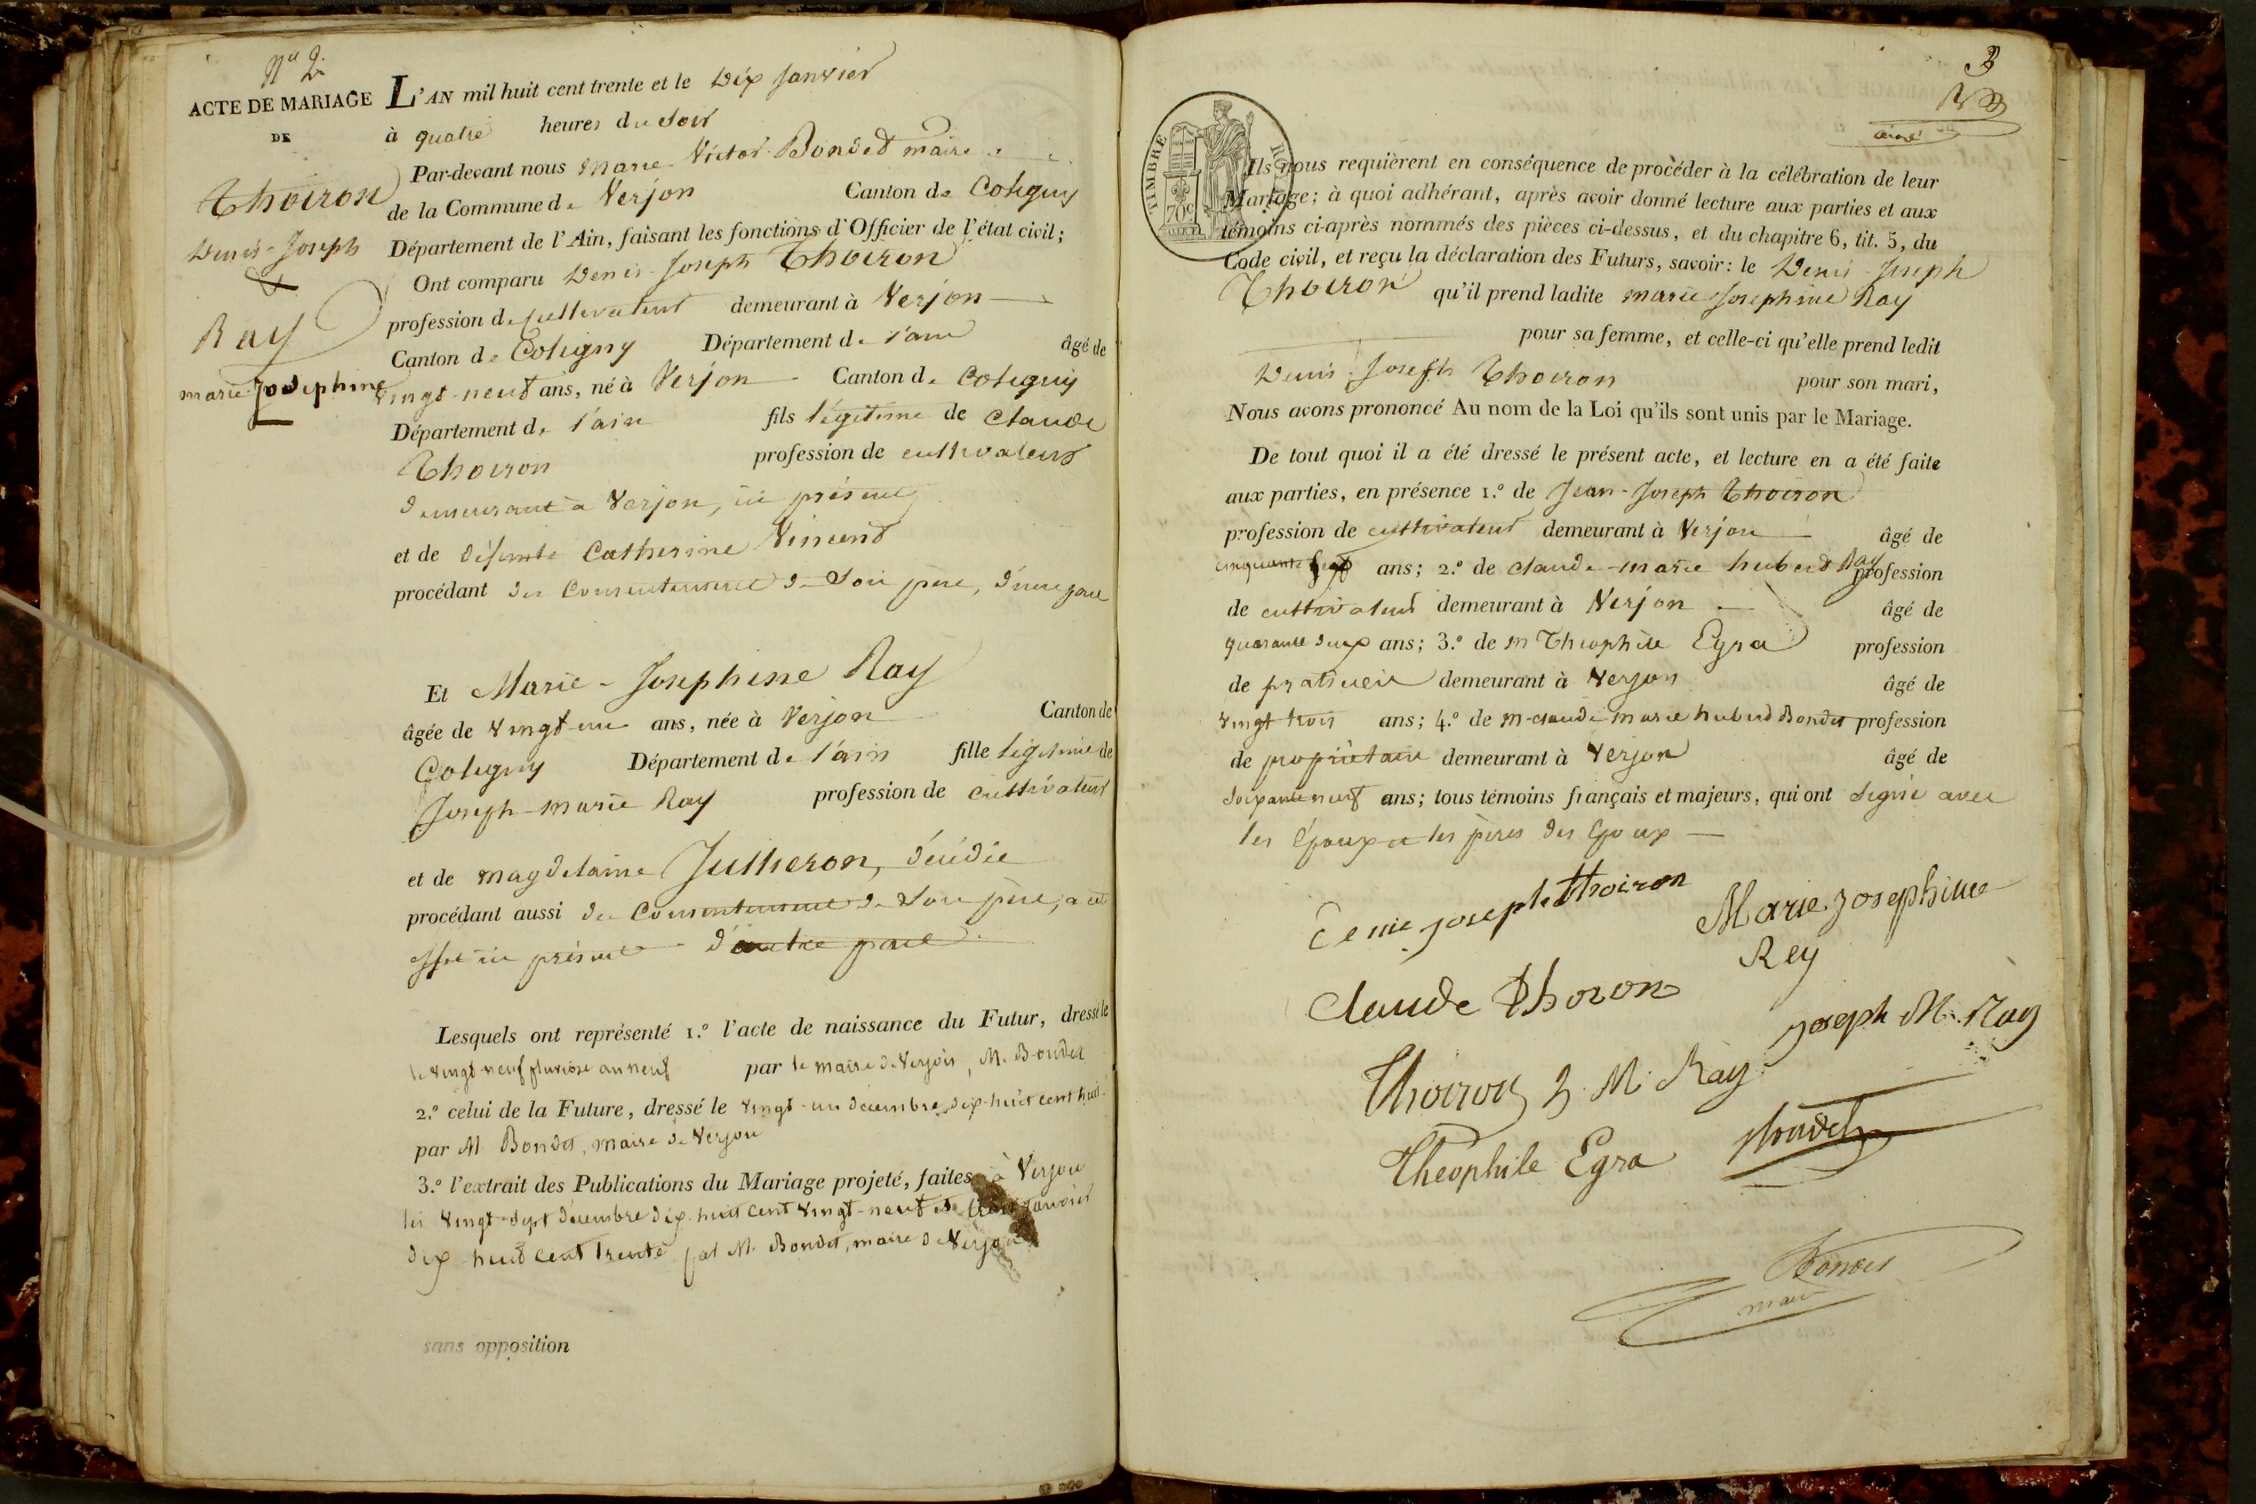 N° 2.
ACTE DE MARIAGE
DE
Thoiron
Denis-Joseph
&
Ray
marie Josephine
L'AN mil huit cent trente et le Dix Janvier
à quatre heures du soir
Par-devant nous Marie-Victor Bondet maire
de la Commune de Verjon Canton de Coligny
Département de l'Ain, faisant les fonctions d'Officier de l'état civil;
Ont comparu Denis-Joseph Thoiron
profession de cultivateur demeurant à Verjon
Canton de Coligny Département de l'ain âgé de
vingt-neuf ans, né à Verjon Canton de Coligny
Département de l'ain fils légitime de Claude
Thoiron profession de cultivateur
demeurant à Verjon, ici présent
et de défunte Catherine Vincent
procédant du Consentement de Son père, d'une part
Et Marie-Josephine Ray
âgée de vingt-un ans, née à Verjon Canton de
Coligny Département de l'ain fille légitime de
Joseph-marie Ray profession de cultivateur
et de magdelaine Jutheron, décédée
procédant aussi du Consentement de Son père, a cet
effet ici présent d'autre part.
Lesquels ont représenté 1.° l'acte de naissance du Futur, dressé le
le vingt-neuf pluviose an neuf par le maire de Verjon, M. Bondet
2.° celui de la Future, dressé le vingt-un décembre dix-huit cent huit
par M. Bondet, maire de Verjon
3.° l'extrait des Publications du Mariage projeté, faites à Verjon
les vingt-sept décembre dix-huit cent vingt-neuf et trois janvier
dix huit cent trente par M. Bondet, maire de Verjon
sans opposition
3
TIMBRE ROYAL
70c
Ils nous requièrent en conséquence de procéder à la célébration de leur
Mariage; à quoi adhérant, après avoir donné lecture aux parties et aux
témoins ci-après nommés des pièces ci-dessus, et du chapitre 6, tit. 5, du
Code civil, et reçu la déclaration des Futurs, savoir: le Denis-Joseph
Thoiron qu'il prend ladite marie Josephine Ray
pour sa femme, et celle-ci qu'elle prend ledit
Denis-Joseph Thoiron pour son mari,
Nous avons prononcé Au nom de la Loi qu'ils sont unis par le Mariage.
De tout quoi il a été dressé le présent acte, et lecture en a été faite
aux parties, en présence 1.° de Jean-Joseph Thoiron
profession de cultivateur demeurant à Verjon âgé de
cinquante sept ans; 2.° de claude-marie hubert Ray profession
de cultivateur demeurant à Verjon âgé de
quarante deux ans; 3.° de m Théophile Egra profession
de praticien demeurant à Verjon âgé de
vingt trois ans; 4.° de m-claude marie hubert Bondet profession
de propriétaire demeurant à Verjon âgé de
soixante neuf ans; tous témoins français et majeurs, qui ont signé avec
les époux et les pères des époux
Denie joseph thoiron
Marie Josephine
Rey
Claude Thoron
joseph M. Ray
Thoiron h. M. Ray
Theophile Egra
Bondet
Bondet
maire